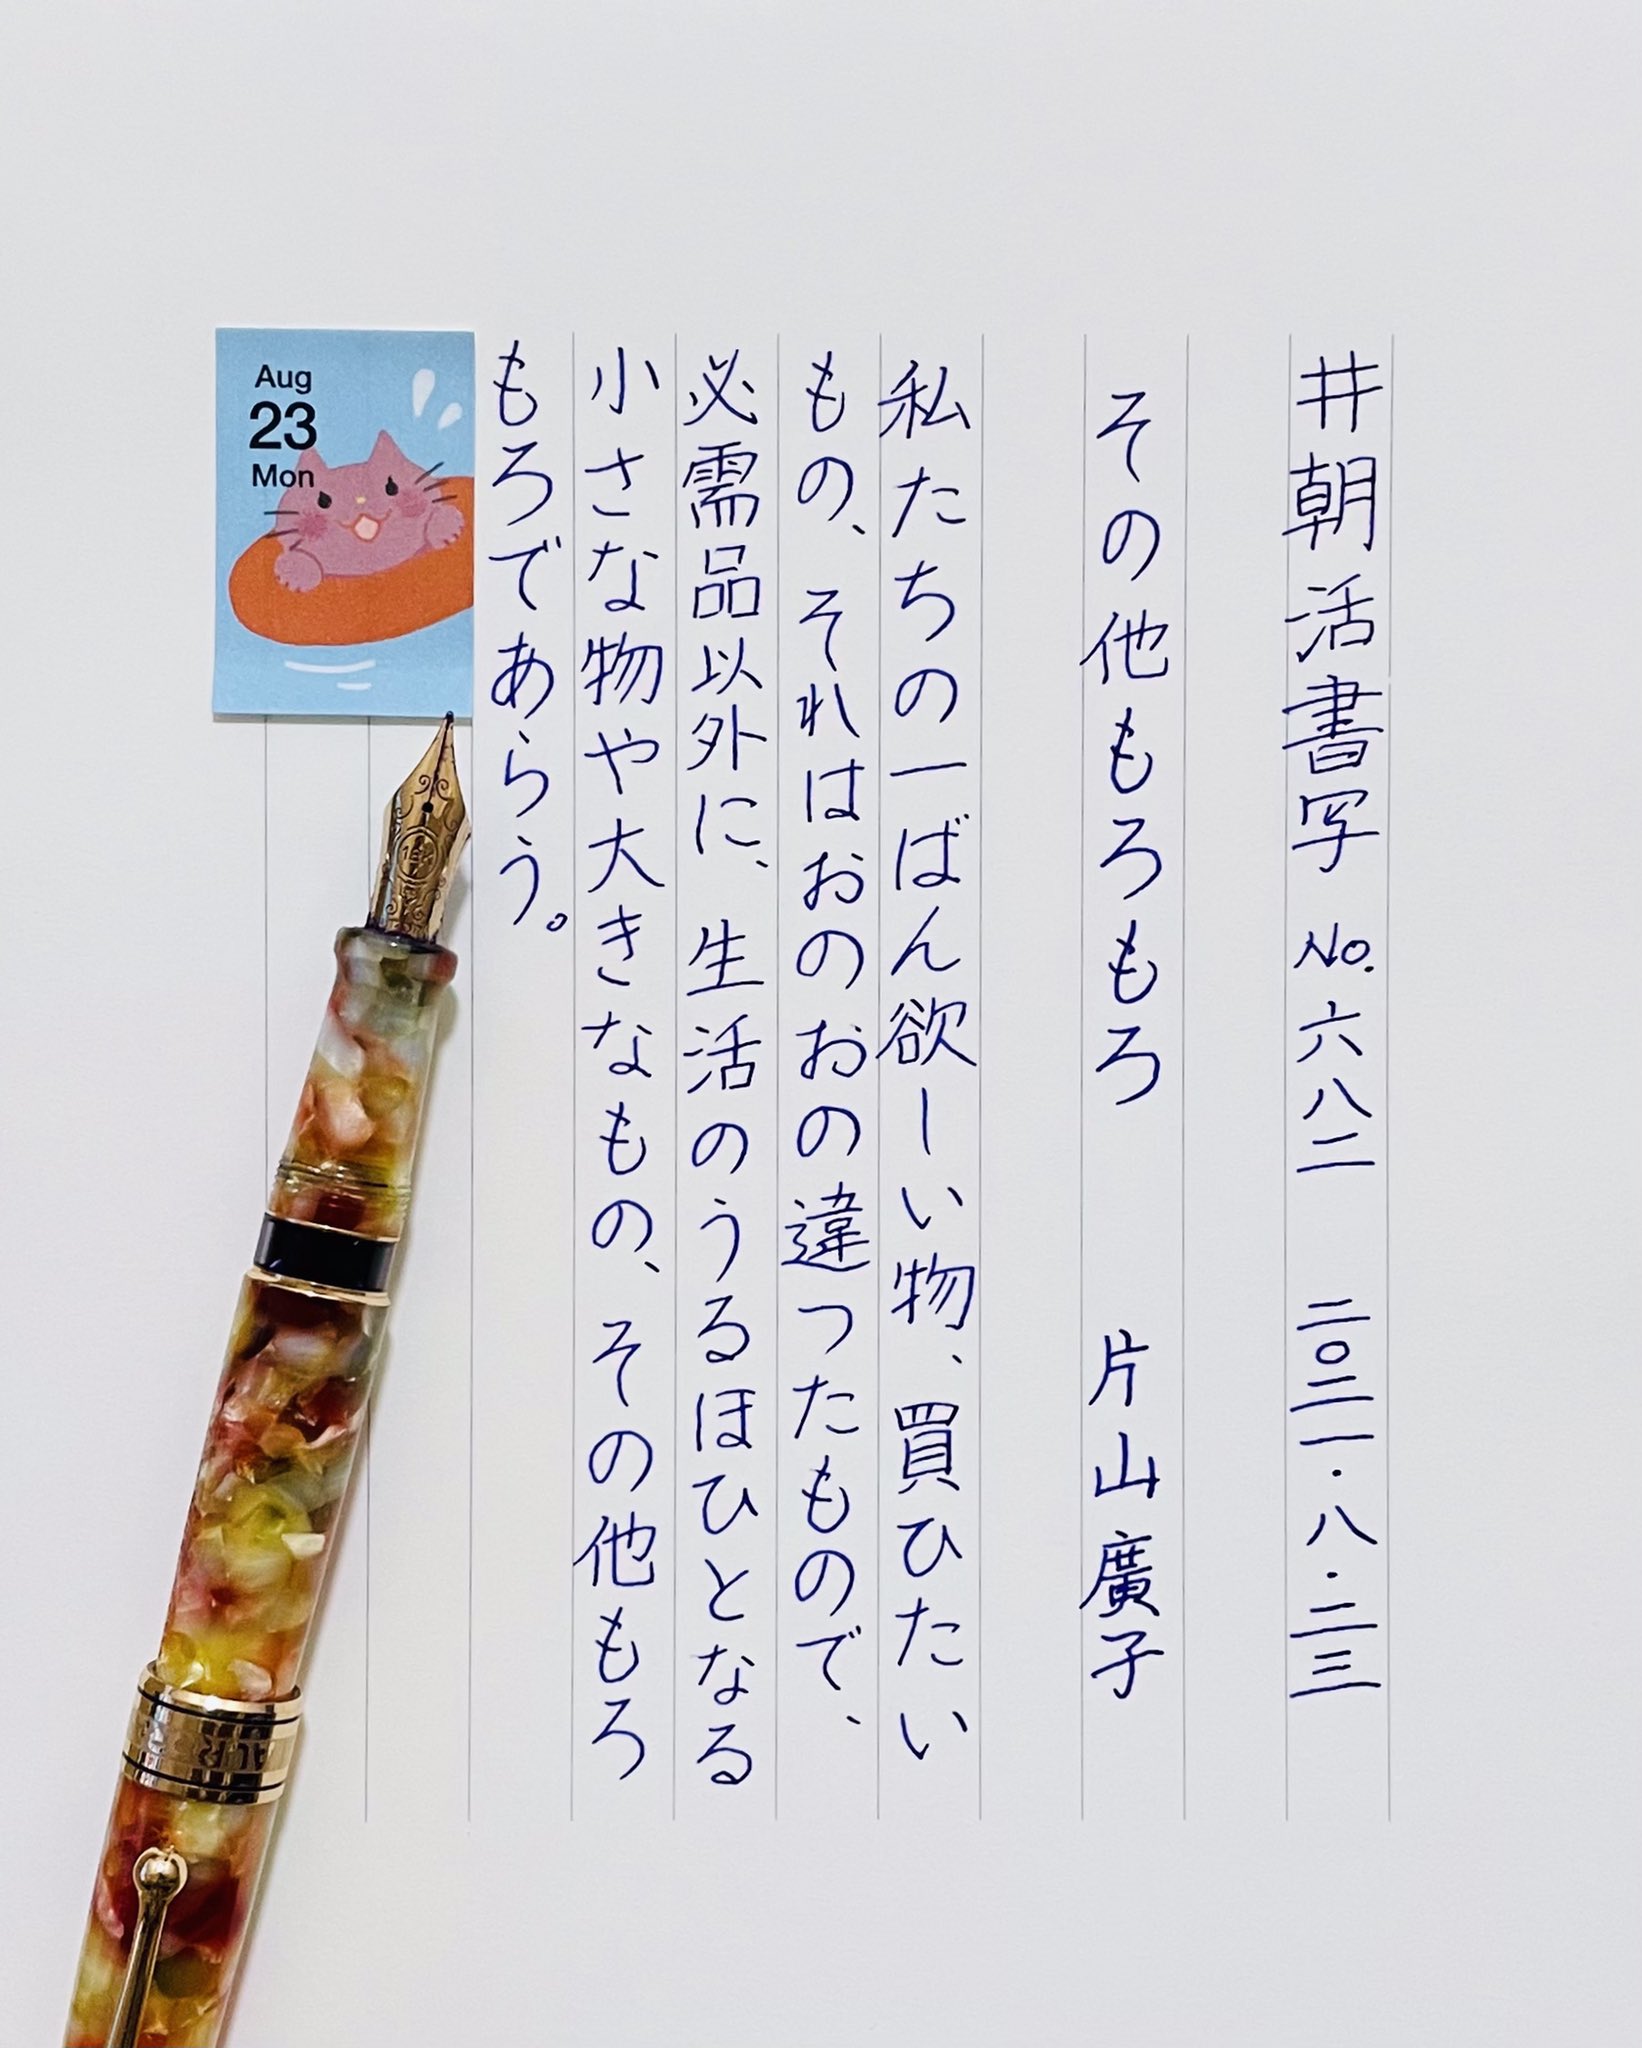 #朝活書写 No.六八二 二〇二一・八・二三
その他もろもろ 片山廣子
私たちの一ばん欲しい物、買ひたい
もの、それはおのおの違つたもので、
必需品以外に、生活のうるほひとなる
小さな物や大きなもの、その他もろ
もろであらう。
Aug
23
Mon